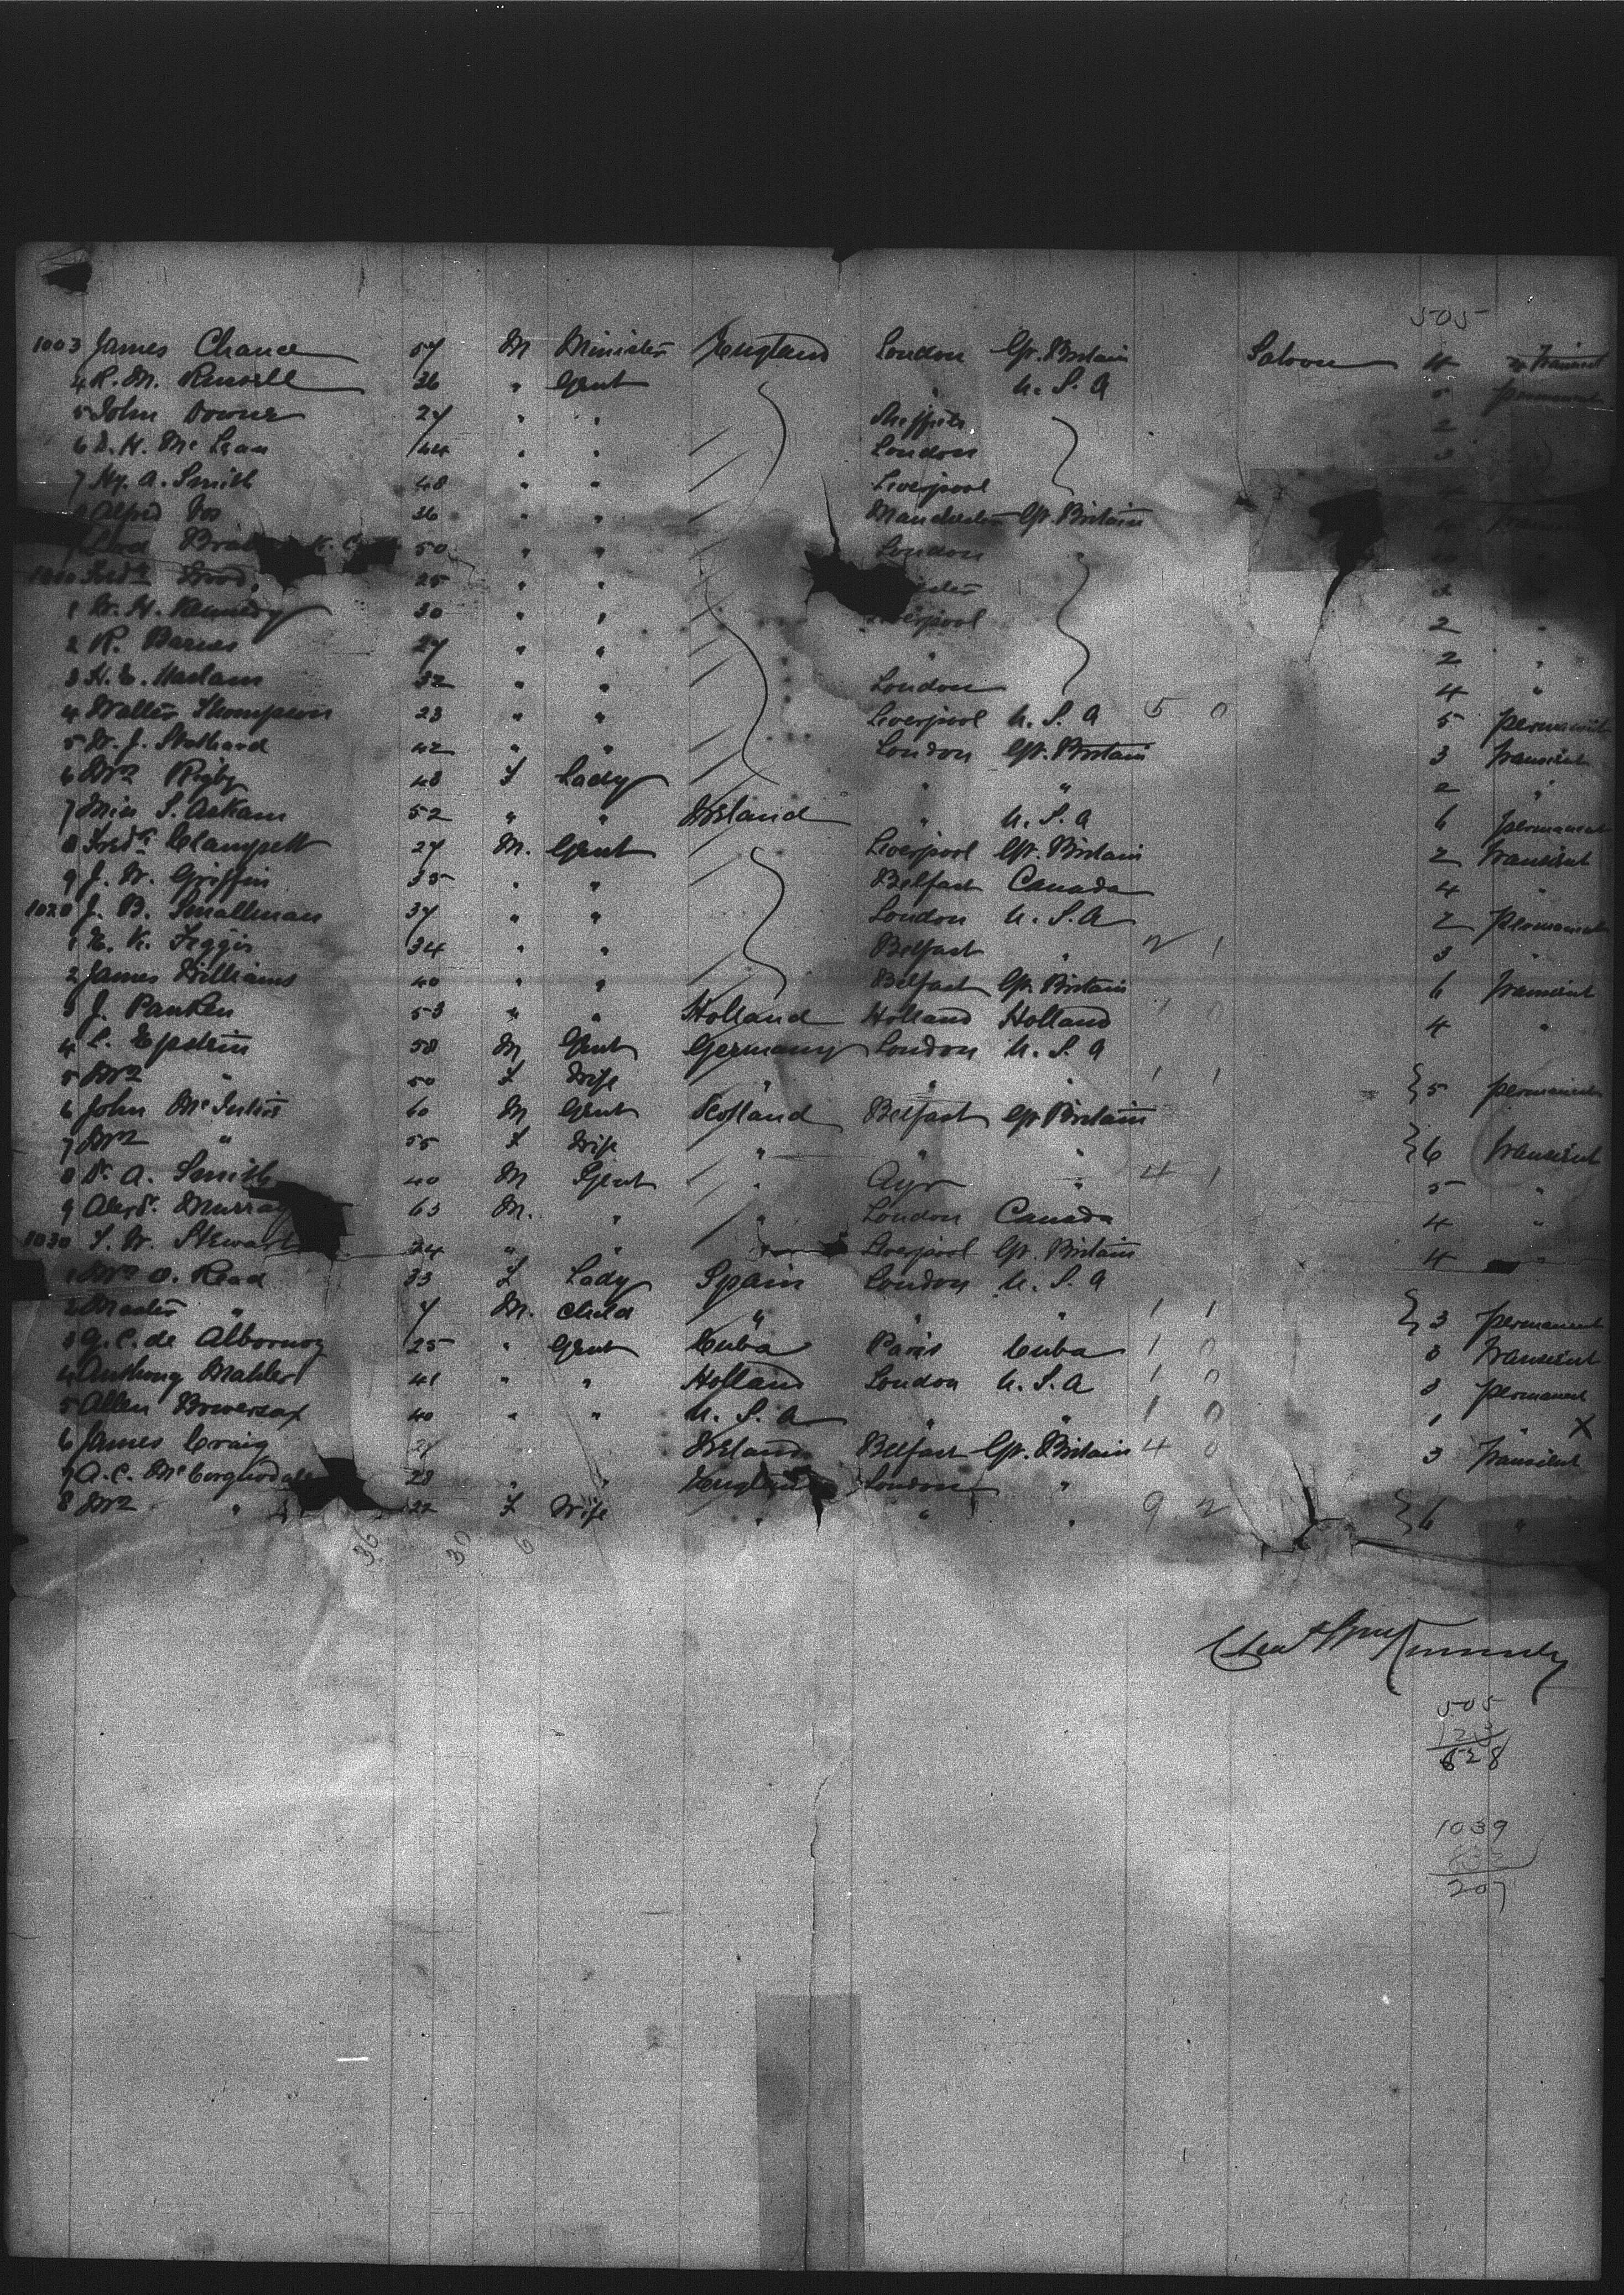 505
1003 James Chance 57 M Minister England London Gt. Britain Saloon 4 Transient
4 R. M. Russell 36 " Gent " U. S. A 5 permanent
5 John Downer 27 " " Sheffield 2
6 D. H. McLean 44 " " London 3
7 Hy. A. Smith 48 " " Liverpool
8 Alfred 36 " " Manchester Gt. Britain
50 " " London "
1010 Fredk. Wood 25 " "
1 W. H. Kennedy 30 " " Liverpool 2 "
2 R. Barnes 27 " " " 2 "
3 H. E. Haslam 32 " " London 4 "
4 Walter Thompson 23 " " Liverpool U. S. A 5 0 5 permanent
5 W. J. Stothard 42 " " London Gt. Britain 3 transient
6 Mrs Rigby 48 F Lady " " 2 "
7 Miss S. Askam 52 " " Ireland " U. S. A 6 permanent
8 Fredk. Clampett 27 M. Gent Liverpool Gt. Britain 2 transient
9 J. W. Griffin 35 " " Belfast Canada 4 "
1020 J. B. Smallman 37 " " London U. S. A 2 permanent
1 K. Feggis 34 " " Belfast " 2 1 3 "
2 James Williams 40 " " Belfast Gt. Britain 6 transient
3 J. Panken 53 " " Holland Holland Holland 1 0 4 "
4 L. Epstein 58 M Gent Germany London U. S. A
5 Mrs " 50 F Wife " " " 1 1 } 5 permanent
6 John 60 M Gent Scotland Belfast Gt. Britain
7 Mrs " 55 F Wife " " " } 6 transient
8 A. Smith 40 M Gent " Ayr " 4 1 5 "
9 Alexr. Murray 63 M. " " London Canada 4 "
1030 J. W. Stewart 24 " " Liverpool Gt. Britain 4 "
1 Mrs O. Read 33 F Lady Spain London U. S. A
2 Master " 7 M. Child " " " 1 1 } 3 permanent
3 G. C. de Albornoz 25 " Gent Cuba Paris Cuba 1 0 3 transient
4 Anthony Mahler 41 " " Holland London U. S. A 1 0 3 permanent
5 Allen Bowersox 40 " " U. S. A " " 1 0 1 " X
6 James Craig 21 Ireland Belfast Gt. Britain 4 0 3 transient
7 A. C. McCorquodale 28 " " England London "
8 Mrs " 22 F Wife " " " 9 2 } 6 "
36 30 6
505
123
628
1039
207